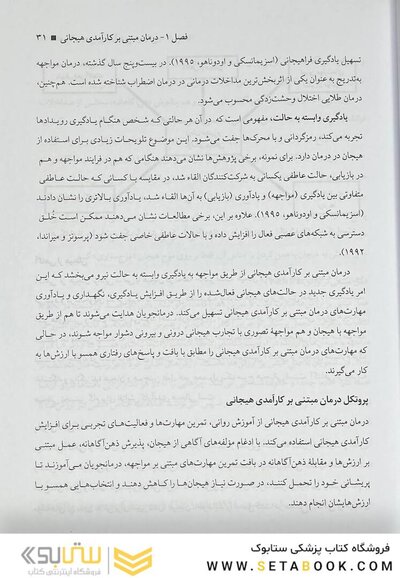 فصل ۱- درمان مبتنی بر کارآمدی هیجانی ■ ۳۱
تسهیل یادگیری فراهیجانی (اسزیمانسکی و اودوناهو، ۱۹۹۵). در بیست‌وپنج سال گذشته، درمان مواجهه
به‌تدریج به عنوان یکی از اثربخش‌ترین مداخلات درمانی در درمان اضطراب شناخته شده است. هم‌چنین،
درمان طلایی اختلال وحشت‌زدگی محسوب می‌شود.
یادگیری وابسته به حالت، مفهومی است که در آن هر حالتی که شخص هنگام یادگیری رویدادها
تجربه می‌کند، رمزگردانی و با محرک‌ها جفت می‌شود. این موضوع تلویحات زیادی برای استفاده از
هیجان در درمان دارد. برای نمونه، برخی پژوهش‌ها نشان می‌دهند هنگامی که هم در فرایند مواجهه و هم
در بازیابی، حالت عاطفی یکسانی به شرکت‌کنندگان القاء شد، در مقایسه با کسانی که حالت عاطفی
متفاوتی بین یادگیری (مواجهه) و یادآوری (بازیابی) به آن‌ها القاء شد، یادآوری بالاتری را نشان دادند
(اسزیمانسکی و اودوناهو، ۱۹۹۵). علاوه بر این، برخی مطالعات نشان می‌دهند ممکن است خُلق
دسترسی به شبکه‌های عصبی فعال را افزایش داده و با حالات عاطفی خاصی جفت شود (پرسونز و میراندا،
۱۹۹۲).
درمان مبتنی بر کارآمدی هیجانی از طریق مواجهه به یادگیری وابسته به حالت نیرو می‌بخشد که این
امر یادگیری جدید در حالت‌های هیجانی فعال‌شده را از طریق افزایش یادگیری، نگهداری و یادآوری
مهارت‌های درمان مبتنی بر کارآمدی هیجانی تسهیل می‌کند. درمانجویان هدایت می‌شوند تا هم از طریق
مواجهه با هیجان و هم مواجههٔ تصوری با تجارب هیجانی درونی و بیرونی دشوار مواجه شوند، در حالی
که مهارت‌های درمان مبتنی بر کارآمدی هیجانی را مطابق با بافت و پاسخ‌های رفتاری همسو با ارزش‌ها به
کار می‌گیرند.
پروتکل درمان مبتنی بر کارآمدی هیجانی
درمان مبتنی بر کارآمدی هیجانی از آموزش روانی، تمرین مهارت‌ها و فعالیت‌های تجربی برای افزایش
کارآمدی هیجانی استفاده می‌کند. با ادغام مؤلفه‌های آگاهی از هیجان، پذیرش ذهن‌آگاهانه، عمل مبتنی
بر ارزش‌ها و مقابلهٔ ذهن‌آگاهانه در بافت تمرین مهارت‌های مبتنی بر مواجهه، درمانجویان می‌آموزند تا
پریشانی خود را تحمل کنند، در صورت نیاز هیجان‌ها را کاهش دهند و انتخاب‌هایی همسو با
ارزش‌هایشان انجام دهند.
فروشگاه کتاب پزشکی ستابوک
WWW.SETABOOK.COM
ستابوک
فروشگاه اینترنتی کتاب